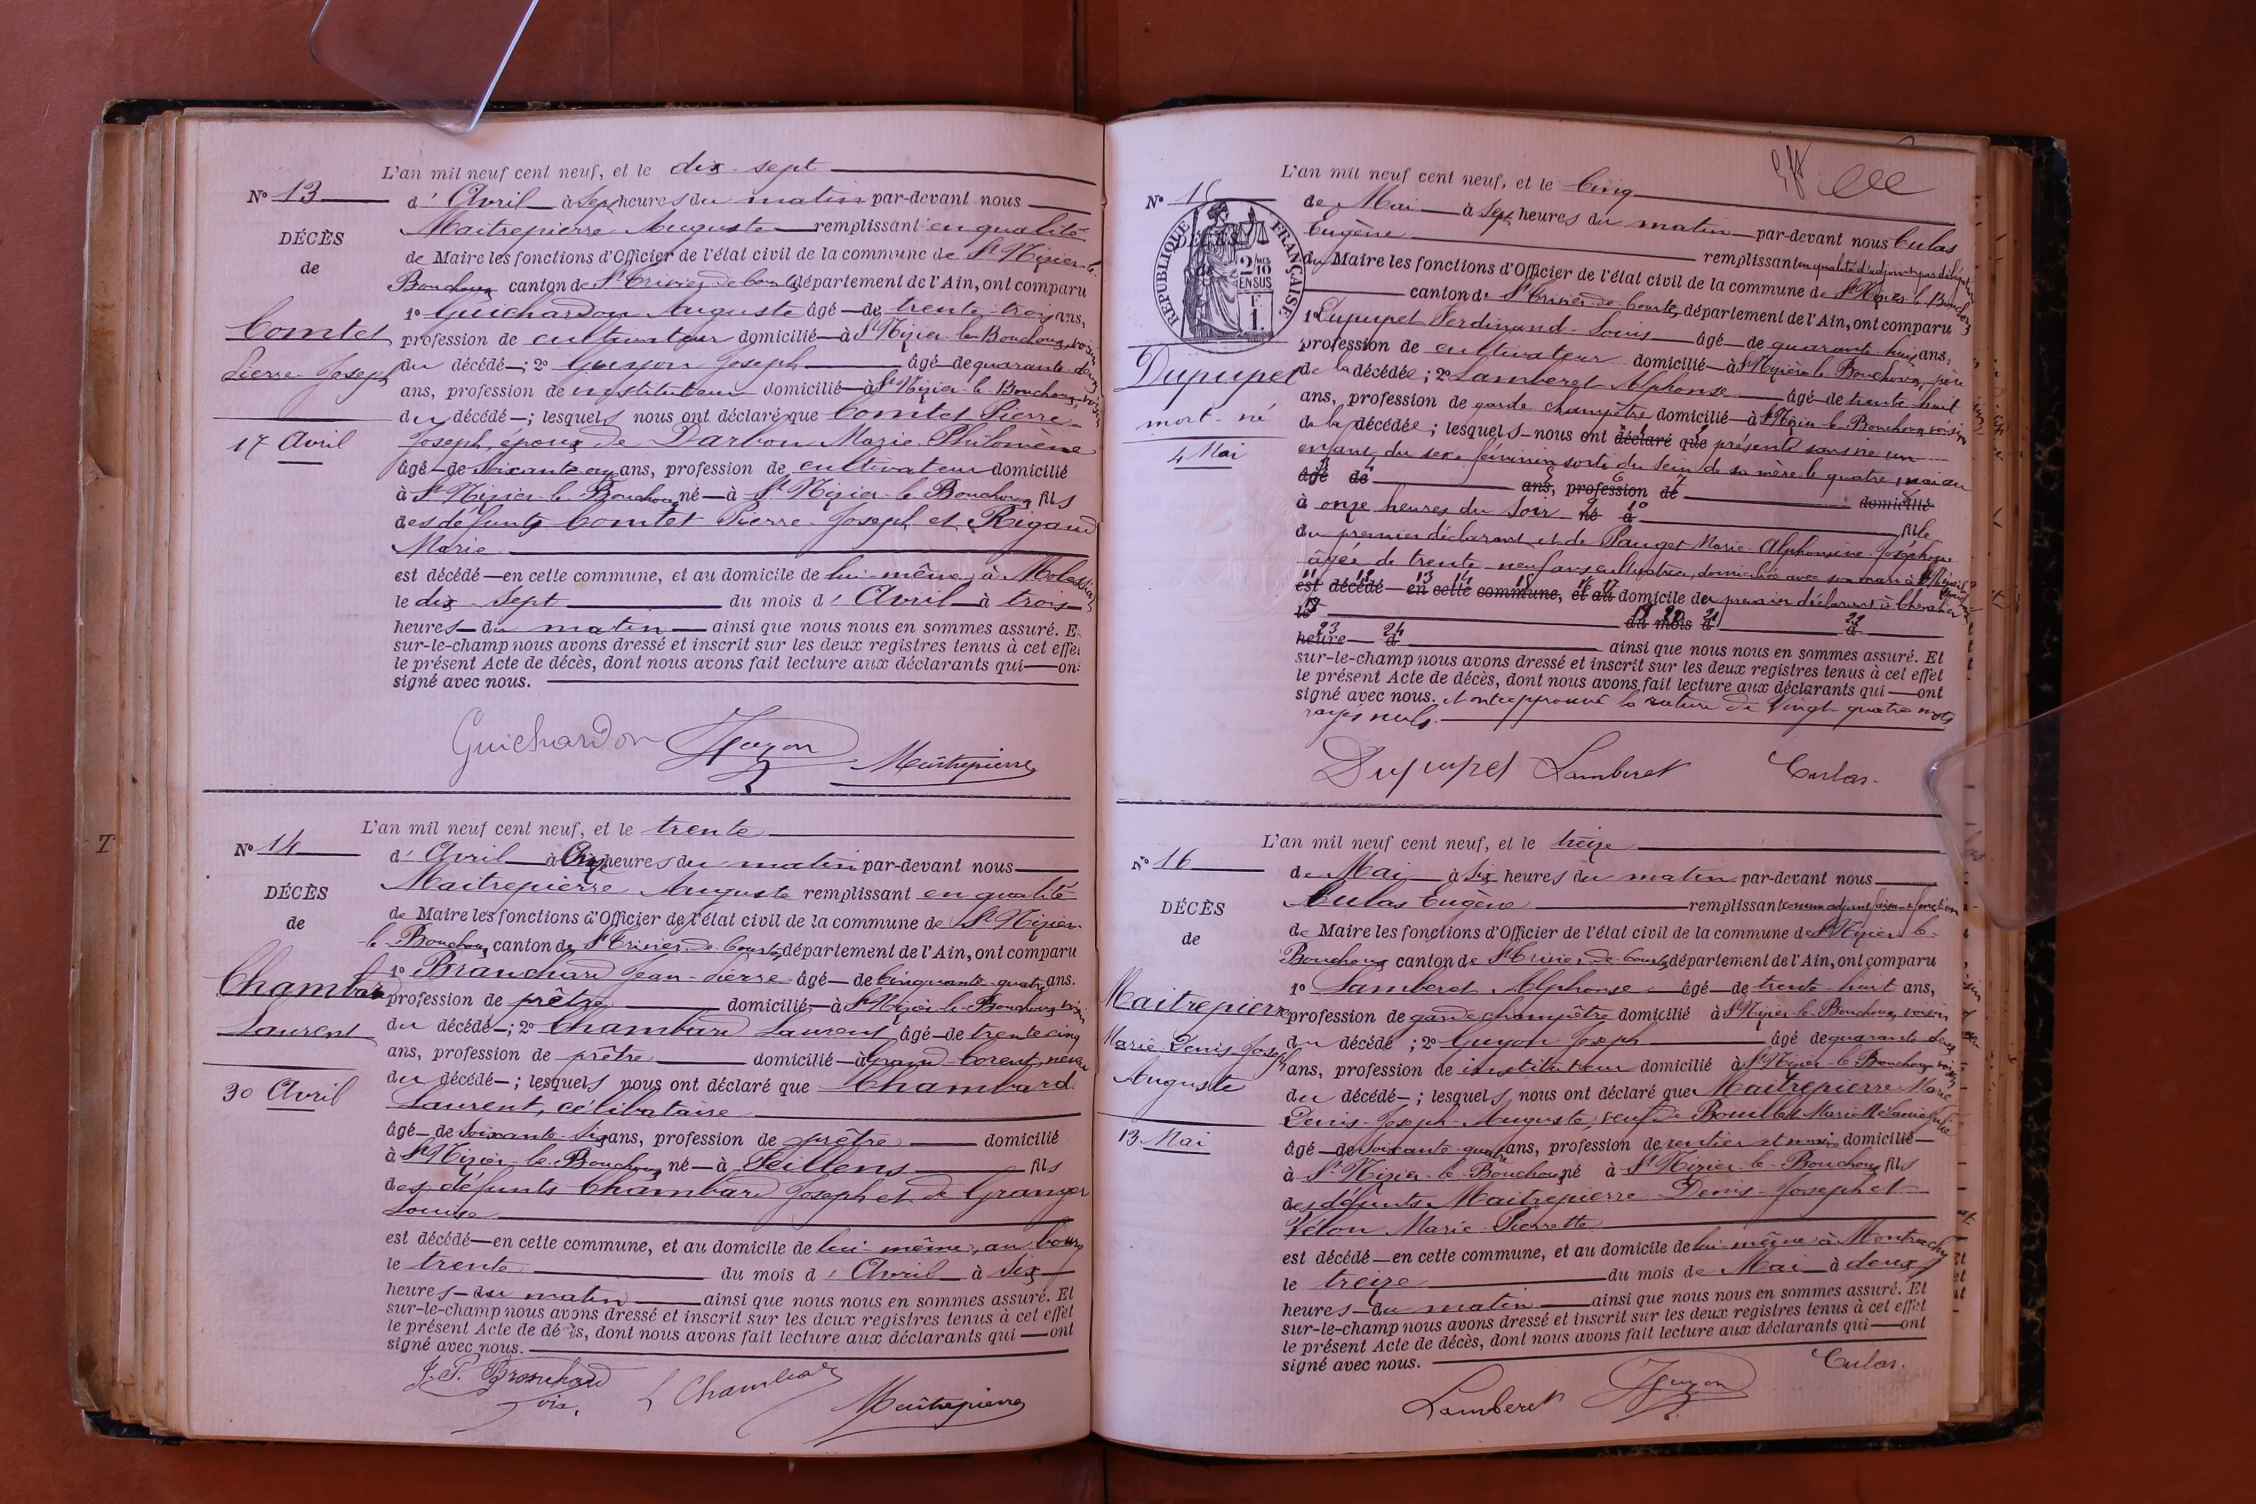 L'an mil neuf cent neuf, et le dix-sept
N° 13
d'Avril à sept heures du matin par-devant nous
Maitrepierre Auguste remplissant en qualité
DÉCÈS
de Maire les fonctions d'Officier de l'état civil de la commune de St Nizier-le-
de
Bouchoux canton de St Trivier-de-Courtes département de l'Ain, ont comparu
1° Guichardon Auguste âgé de trente-trois ans,
Comtet
profession de cultivateur domicilié à St Nizier-le-Bouchoux, voisin
Pierre-Joseph
du décédé ; 2° Guyon Joseph âgé de quarante-deux
ans, profession de instituteur domicilié à St Nizier-le-Bouchoux, voisin
du décédé ; lesquels nous ont déclaré que Comtet Pierre-
17 Avril
Joseph, époux de Darbon Marie-Philomène
âgé de soixante ans, profession de cultivateur domicilié
à St Nizier-le-Bouchoux né à St Nizier-le-Bouchoux fils
des défunts Comtet Pierre-Joseph et Rigaud
Marie
est décédé en cette commune, et au domicile de lui-même, à
le dix-sept du mois d'Avril à trois
heures du matin ainsi que nous nous en sommes assuré. E
sur-le-champ nous avons dressé et inscrit sur les deux registres tenus à cet effet
le présent Acte de décès, dont nous avons fait lecture aux déclarants qui ont
signé avec nous.
Guichardon JGuyon Maîtrepierre
L'an mil neuf cent neuf, et le trente
N° 14
d'Avril à heures du matin par-devant nous
Maitrepierre Auguste remplissant en qualité
DÉCÈS
de Maire les fonctions d'Officier de l'état civil de la commune de St Nizier-
de
le-Bouchoux canton de St Trivier-de-Courtes département de l'Ain, ont comparu
1° Branchard Jean-Pierre âgé de cinquante-quatre ans.
Chambard
profession de prêtre domicilié à St Nizier-le-Bouchoux, voisin
Laurent
du décédé ; 2° Chambard Laurent âgé de trente-cinq
ans, profession de prêtre domicilié à Grand-Corent, neveu
du décédé ; lesquels nous ont déclaré que Chambard
30 Avril
Laurent, célibataire
âgé de soixante-six ans, profession de prêtre domicilié
à St Nizier-le-Bouchoux né à Seillens fils
des défunts Chambard Joseph et de Granger
Louise
est décédé en cette commune, et au domicile de lui-même, au bourg
le trente du mois d'Avril à six
heures du matin ainsi que nous nous en sommes assuré. Et
sur-le-champ nous avons dressé et inscrit sur les deux registres tenus à cet effet
le présent Acte de décès, dont nous avons fait lecture aux déclarants qui ont
signé avec nous.
J. P. Branchard
L Chambard Maîtrepierre
L'an mil neuf cent neuf, et le cinq
N° 15
de Mai à sept heures du matin par-devant nous Culas
Eugène remplissant en qualité d'adjoint par délégation
RÉPUBLIQUE FRANÇAISE
DÉCÈS
de
du Maire les fonctions d'Officier de l'état civil de la commune de St Nizier-le-Bouchoux
canton de St Trivier-de-Courtes, département de l'Ain, ont comparu
1° Dupupet Ferdinand-Louis âgé de quarante-huit ans,
profession de cultivateur domicilié à St Nizier-le-Bouchoux, père
Dupupet
de la décédée ; 2° Lamberet Alphonse âgé de trente-huit
mort-né
ans, profession de garde champêtre domicilié à St Nizier-le-Bouchoux, voisin
de la décédée ; lesquels nous ont déclaré que présenté sans vie un
4 Mai
enfant du sexe féminin sorti du sein de sa mère le quatre mai an
âgé de ans, profession de domicilié
à onze heures du soir né à fille
du premier déclarant et de Pauget Marie-Alphonsine-Joséphine
âgée de trente-neuf ans cultivatrice, domiciliée avec son mari à St Nizier-le-Bouchoux
est décédé en cette commune, et au domicile du premier déclarant à Chevalier
le du mois d à
heure d ainsi que nous nous en sommes assuré. Et
sur-le-champ nous avons dressé et inscrit sur les deux registres tenus à cet effet
le présent Acte de décès, dont nous avons fait lecture aux déclarants qui ont
signé avec nous. et ont approuvé la rature de vingt-quatre mots
rayés nuls.
Dupupet Lamberet Culas
L'an mil neuf cent neuf, et le treize
N° 16
de Mai à six heures du matin par-devant nous
Culas Eugène remplissant comme adjoint faisant fonction
DÉCÈS
de Maire les fonctions d'Officier de l'état civil de la commune de St Nizier-le-
de
Bouchoux canton de St Trivier-de-Courtes département de l'Ain, ont comparu
1° Lamberet Alphonse âgé de trente-huit ans,
Maitrepierre
profession de garde champêtre domicilié à St Nizier-le-Bouchoux, voisin
Marie-Denis-Joseph
du décédé ; 2° Guyon Joseph âgé de quarante-deux
Auguste
ans, profession de instituteur domicilié à St Nizier-le-Bouchoux, voisin
du décédé ; lesquels nous ont déclaré que Maitrepierre Marie
Denis-Joseph-Auguste, veuf de Bouillet Marie
13 Mai
âgé de soixante-quatre ans, profession de rentier et maire domicilié
à St Nizier-le-Bouchoux né à St Nizier-le-Bouchoux fils
des défunts Maitrepierre Denis-Joseph et
Vélon Marie-Pierrette
est décédé en cette commune, et au domicile de lui-même à Montrachy
le treize du mois de Mai à deux
heures du matin ainsi que nous nous en sommes assuré. Et
sur-le-champ nous avons dressé et inscrit sur les deux registres tenus à cet effet
le présent Acte de décès, dont nous avons fait lecture aux déclarants qui ont
signé avec nous.
Lamberet JGuyon Culas